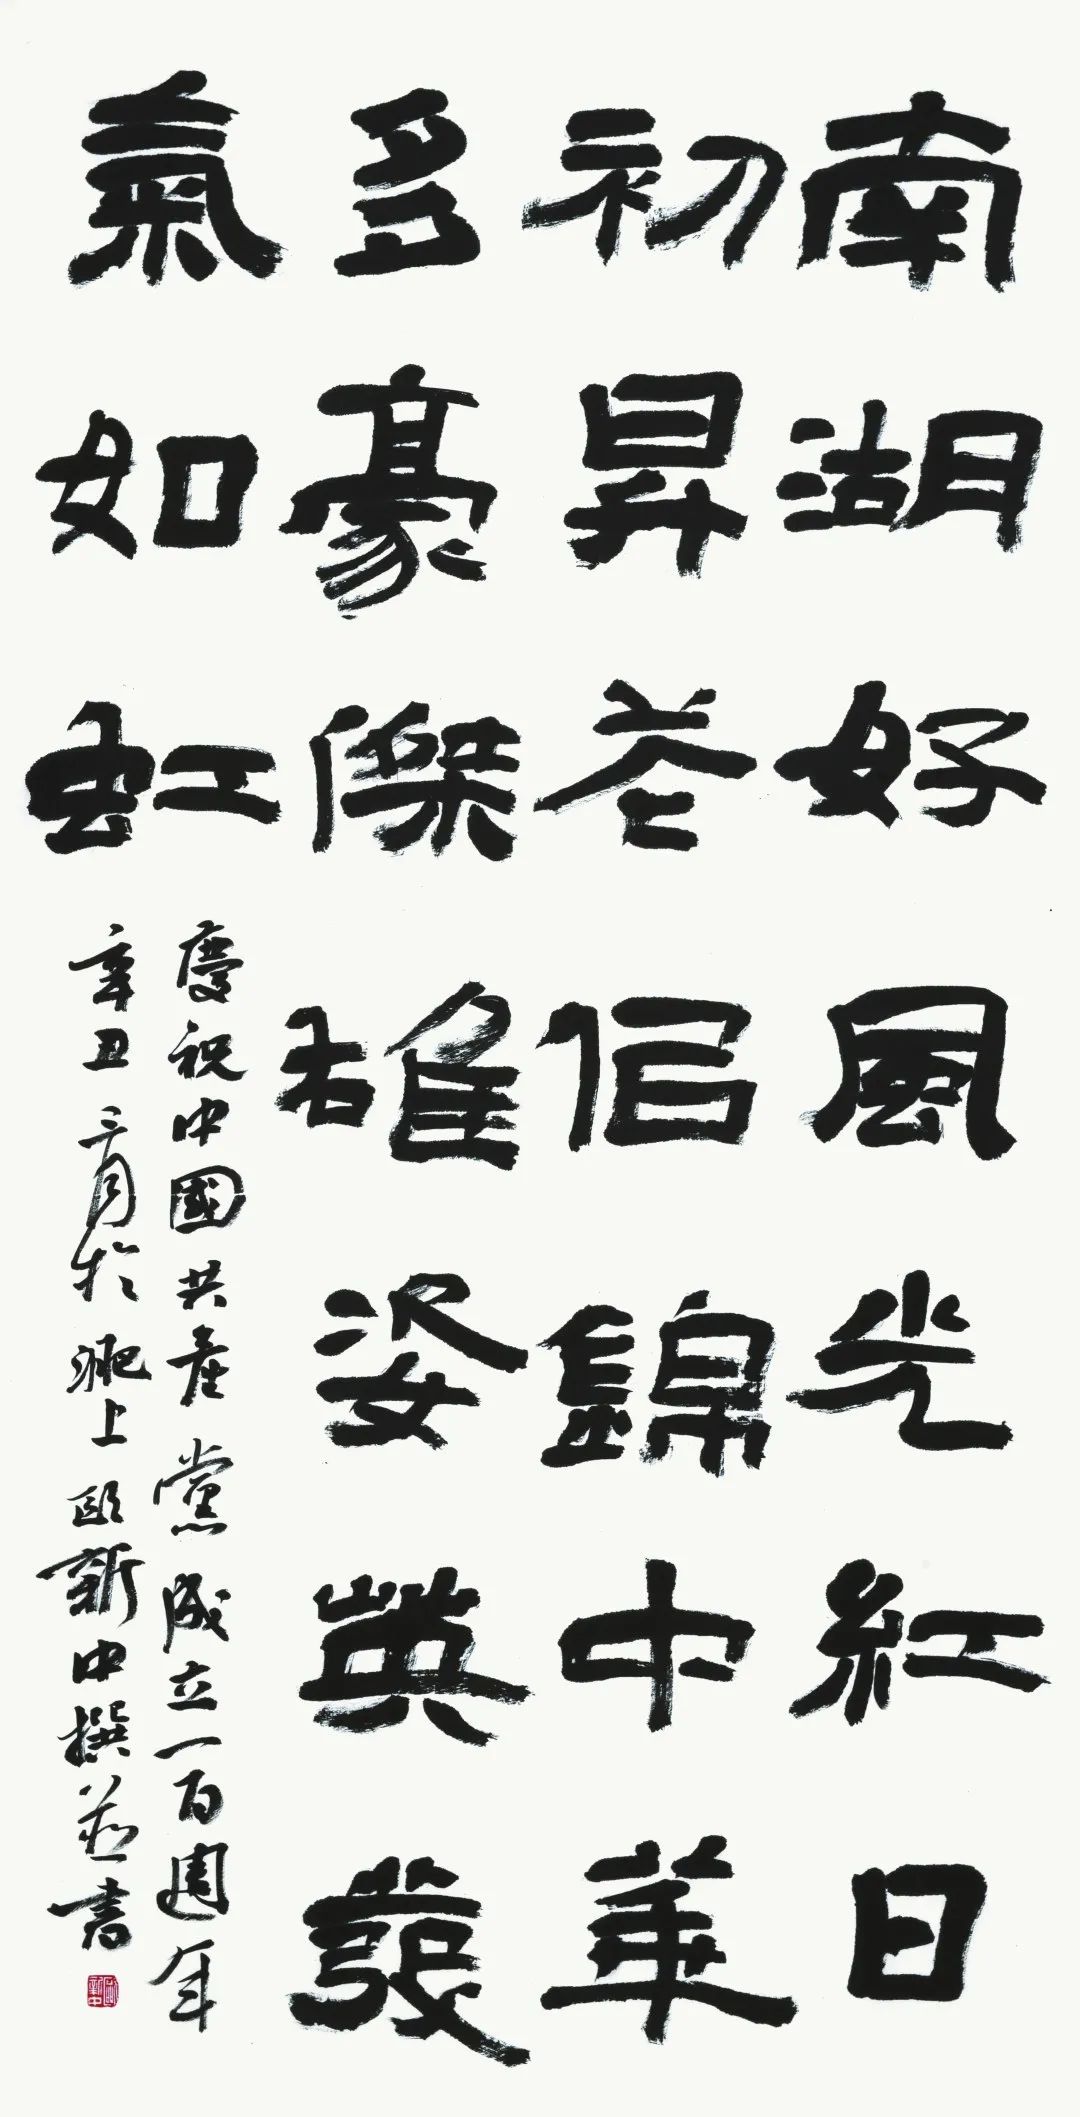 南湖好風光紅日
初昇花佀錦中華
多豪傑雄姿英發
氣如虹
慶祝中國共產黨成立一百週年
辛丑三月於淝上欧新中撰並書